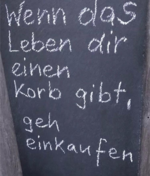 Wenn das
Leben dir
einen
Korb gibt,
geh
einkaufen